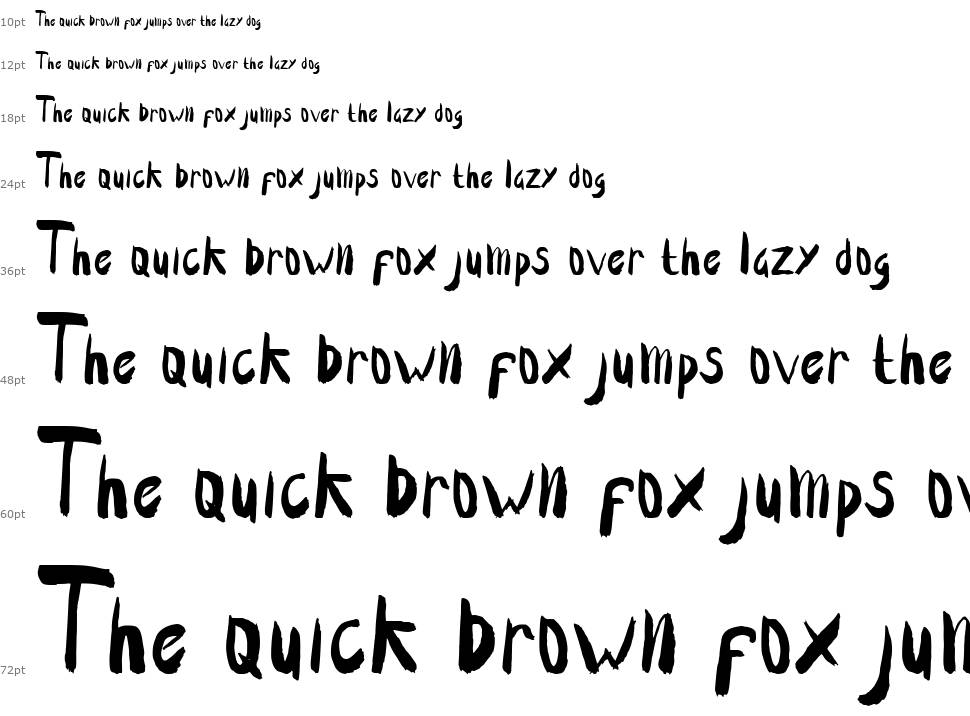 10pt The quick brown fox jumps over the lazy dog
12pt The quick brown fox jumps over the lazy dog
18pt The quick brown fox jumps over the lazy dog
24pt The quick brown fox jumps over the lazy dog
36pt The quick brown fox jumps over the lazy dog
48pt The quick brown fox jumps over the
60pt The quick brown fox jumps ov
72pt The quick brown fox jum